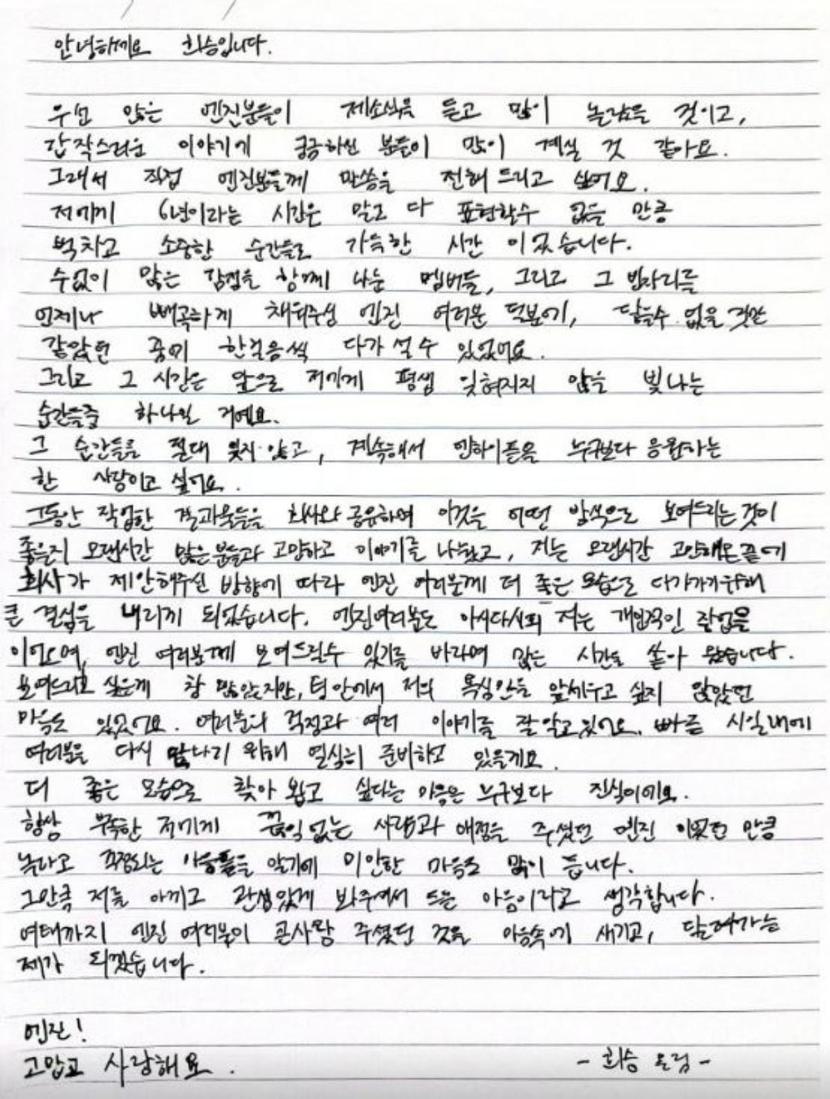 안녕하세요 희승입니다.
우선 많은 엔진분들이 제소식을 듣고 많이 놀랐을 것이고,
갑작스러운 이야기에 궁금하신 분들이 많이 계실 것 같아요.
그래서 직접 엔진분들께 말씀을 전해 드리고 싶어요.
저에게 6년이라는 시간은 말로 다 표현할수 없을 만큼
벅차고 소중한 순간들로 가득한 시간 이었습니다.
수없이 많은 감정을 함께 나눈 멤버들, 그리고 그 빈자리를
언제나 빼곡하게 채워주신 엔진 여러분 덕분에, 닿을수 없을 것만
같았던 꿈에 한걸음씩 다가 설 수 있었어요.
그리고 그 시간은 앞으로 저에게 평생 잊혀지지 않을 빛나는
순간들중 하나일 거예요.
그 순간들을 절대 잊지 않고, 계속해서 엔하이픈을 누구보다 응원하는
한 사람이고 싶어요.
그동안 작업한 결과물들을 회사와 공유하며 이것을 어떤 방식으로 보여드리는것이
좋을지 오랜시간 많은분들과 고민하고 이야기를 나눴고, 저는 오랜시간 고민해온끝에
회사가 제안해주신 방향에 따라 엔진 여러분께 더 좋은 모습으로 다가가기위해
큰 결심을 내리게 되었습니다. 엔진여러분도 아시다시피 저는 개인적인 작업을
이어오며, 엔진 여러분께 보여드릴수 있기를 바라며 많은 시간을 쏟아 왔습니다.
보여드리고 싶은게 참 많았지만, 팀 안에서 저의 욕심만을 앞세우고 싶지 않았던
마음도 있었어요. 여러분의 걱정과 여러 이야기를 잘 알고 있어요. 빠른 시일내에
여러분을 다시 만나기 위해 열심히 준비하고 있을게요.
더 좋은 모습으로 찾아 뵙고 싶다는 마음은 누구보다 진심이에요.
항상 부족한 저에게 끊임 없는 사랑과 애정을 주셨던 엔진 이었던 만큼
놀라고 걱정되는 마음들을 알기에 미안한 마음도 많이 듭니다.
그만큼 저를 아끼고 관심있게 봐주셔서 드는 마음이라고 생각합니다.
여태까지 엔진 여러분이 큰사랑 주셨던 것을 마음속에 새기고, 달려가는
제가 되겠습니다.
엔진!
고맙고 사랑해요.
- 희승 올림 -